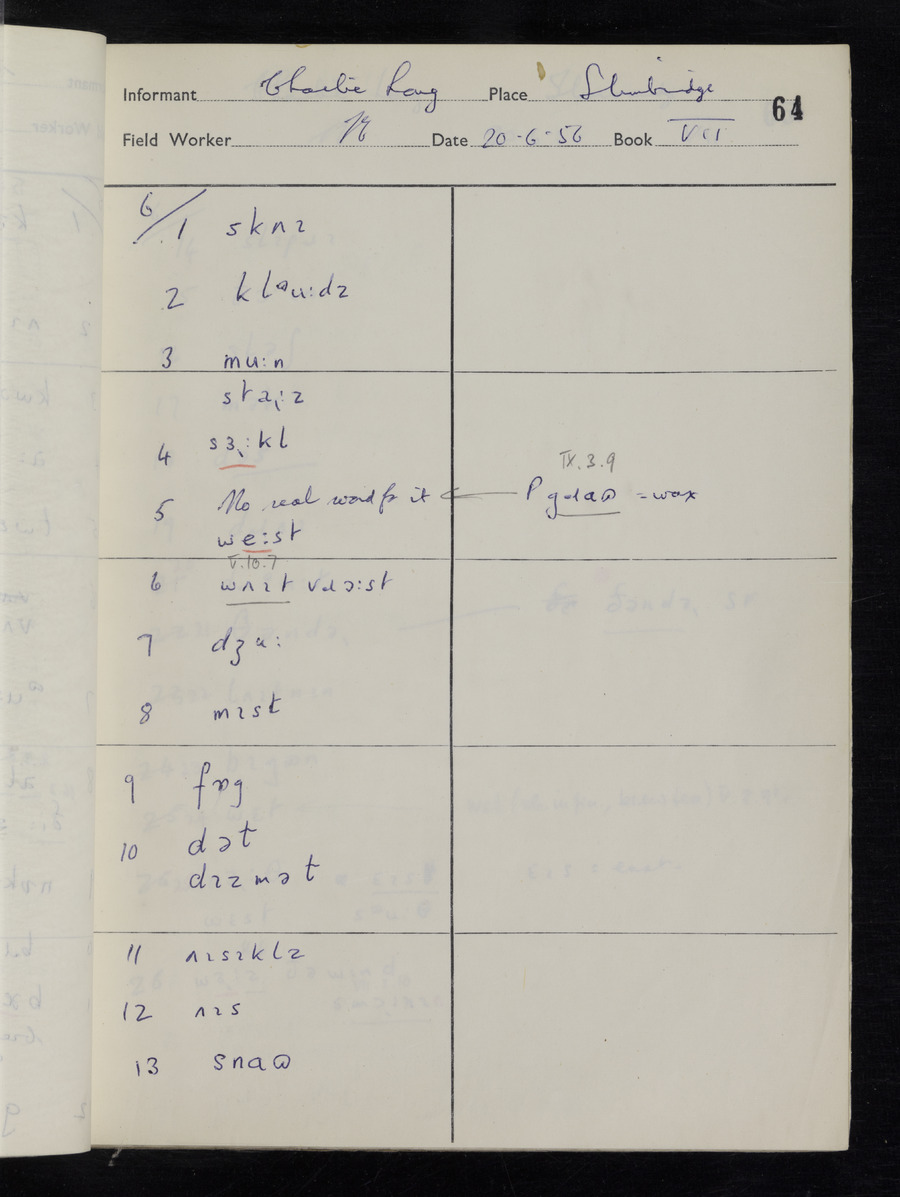 Informant Charlie Long Place Slimbridge
64
Field Worker Date 20-6-56 Book VII
6/1 skʌɪ
2 klᵊu:dz
3 mu:n
sta:z
4 sɜ:kl
IX.3.9
5 No real word for it ← P gɹaɷ = wax
we:st
V.10.7
6 wʌɪt vɹɔ:st
7 dʒu:
8 mɪst
9 fɒg
10 dət
dɹɪzmət
11 ʌɪsɪklz
12 ʌɪs
13 snaɷ